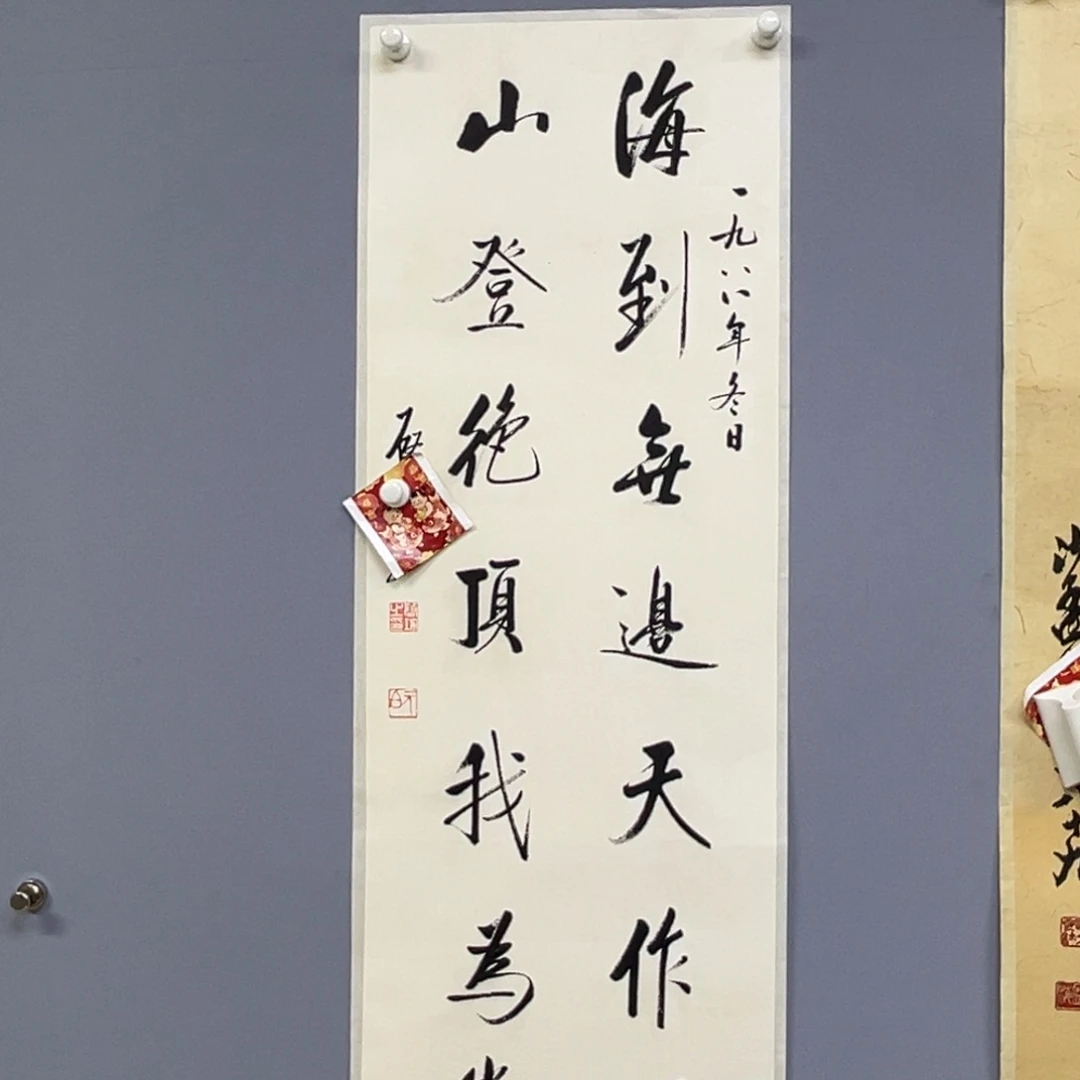 一九八八年冬日
海到無邊天作
山登絶頂我為
啟